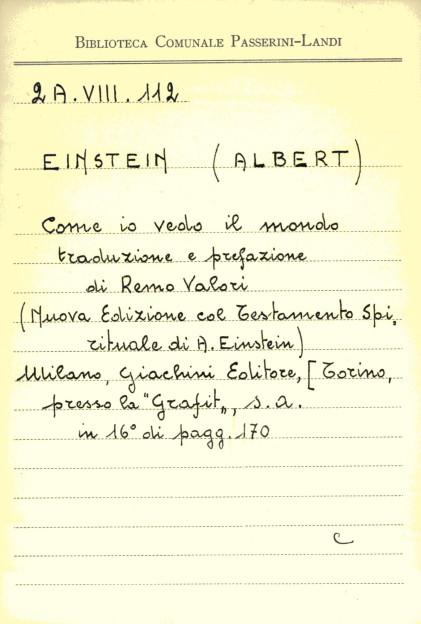 BIBLIOTECA COMUNALE PASSERINI-LANDI
2 A. VIII. 112
EINSTEIN (ALBERT)
Come io vedo il mondo
traduzione e prefazione
di Remo Valori
(Nuova Edizione col Testamento Spi,
rituale di A. Einstein)
Milano, Giachini Editore, [Torino,
presso la "Grafit„, s. a.
in 16° di pagg. 170
c